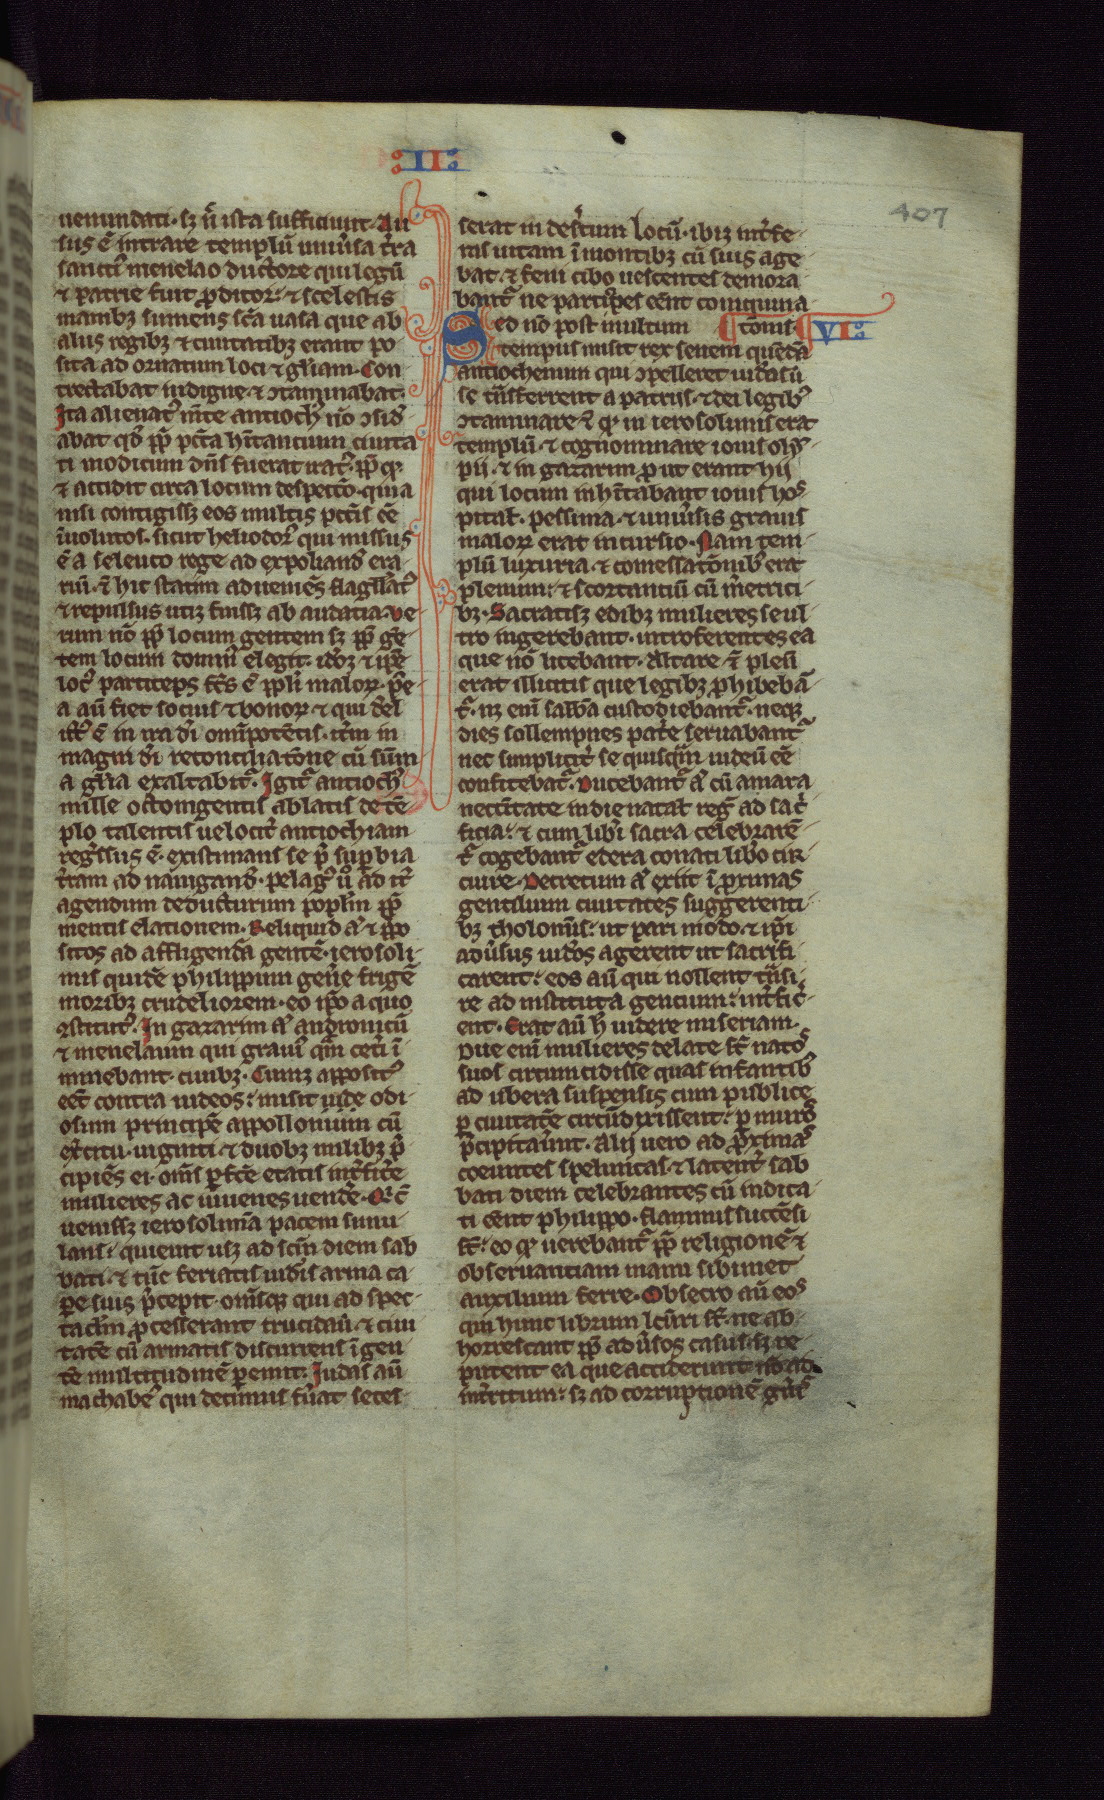 II
407
uenundati· sꝫ n̄ ista sufficiunt· Au
sus ē intrare templū uniu̾sa t̾ra
sanctiꝰ menelao ductore qui legū
⁊ patrie fuit ꝓditor· ⁊ scelestis
manibꝫ sumens sc̄a uasa que ab
aliis regibꝫ ⁊ ciuitatibꝫ erant po
sita ad ornatum loci ⁊ gl̄iam· Con
trectabat indigne ⁊ ɔtaminabat·
Ita alienatꝰ mēte antiochꝰ nō ɔsid̾
abat qd̾ ꝓp̄ pcc̄a hītantium ciuita
ti modicum dn̄s fuerat iratꝰ· ꝓp̄ qꝫ
⁊ accidit circa locum despectō· quia
nisi contigissꝫ eos multis pcc̄is eē
īuolutos· sicut heliodorꝰ qui missus
ē a seleuco rege ad expoliand̾ era
riū· ⁊ hic statim adueniēs flagll̄atꝰ
⁊ repulsus utiꝫ fuissꝫ ab audacia· Ve
rum nō ꝓp̄ locum gentem sꝫ ꝓp̄ gē
tem locum domin̄ elegit· idōꝫ ⁊ ip̄e
locꝰ particeps fc̄s ē ppl̄i maloꝝ· p̄e
a aū fiet sociuſ ⁊ bonoꝝ· ⁊ qui d̾el
ictꝰ ē in ira dī omīpotētis· it̾m in
magni dī reconciliatōne cū sūm
a gl̄ia exaltabit̾· Igit̾ antiochꝰ
mille octoingentis ablatis de tē
plo talentis uelocit̾ antiochiam
reg̾ssus ē· existimans se p̄ sup̾bia
t̾ram ad nauigand̾· pelagꝰ u̾o ad it̾
agendum deducturum poplm̄ ꝓp̄
mentis elationem· Reliquid aͥ ⁊ ꝓpo
sitos ad affligendā gentē· ierosoli
mis quidē philippum gen̄e frigē
moribꝫ crudeliorem· eo ip̄o a quo
ɔstitutꝰ· In gazarim aͥ andronicū
⁊ menelaum qui grauiꝰ qm̄ cet̾i ī
minebant· ciuibꝫ· Cumꝫ appositꝰ
eēt contra iudeos· misit uide odi
osum principē appollonium cū
ex̾citu· uiginti ⁊ duobꝫ milibꝫ p̄
cipiēs ei· om̄s ꝑfcē etatis int̾fic̾e
mulieres ac iuuenes uende· Qi cū
uenissꝫ ierosolimā pacem simu
lans· quieuit usꝫ ad scm̄ diem sab
bati· ⁊ tūc feriatis iud̾is arma ca
ꝑe suis p̄cepit· omēsqꝫ qui ad spec
taclm̄ ꝓcesserant trucidauit· ⁊ ciui
tatē cū armatis discurrens ī gen
tē multitudinē ꝑemit· Iudas aū
machabeꝰ qui decimus fu̾at seces
serat in des̾tum locū· ibiꝫ int̾ fe
ras uitam ī montibꝫ cū suis age
bat· ⁊ feni cibo uescentes demora
bant̾ ne participes eēnt coinquina
Sed nō post multum tōnis· VI
tempus misit rex senem quēdā
antiochenum qui ɔpelleret iud̾os ū
se trāsferrent a patriis ⁊ dei legibꝰ
ɔtaminare ⁊ qꝫ in ierosolimis erat
templū· ⁊ cognominare iouis olȳ
pii· ⁊ in gazarim ꝓut erant hii
qui locum inhītabant iouis hoſ
pital̾· pessima ⁊ uniu̾sis grauis
maloꝝ erat incursio· Nam tem
plū luxuria ⁊ comessatōnibꝰ erat
plenum· ⁊ scortantiū cū m̾etrici
bꝫ· Sacratisꝫ edibꝫ mulieres se ul
tro ingerebant· introferentes ea
que nō licebant· Altare ⁊ plenū
erat illicitis que legibꝫ ꝓhibebā
t̾· nꝫ enī sabba custodiebant̾· neqꝫ
dies sollempnes pat̾e seruabant̾
nec simplicit̾ se quisqm̄ iudeū eē
confitebat̾· Ducebant̾ aͥ cū amara
necc̄itate in die natal̾ reg̾ ad sac̾i
ficia· ⁊ cum lib̾i sacra celebrarē
t̾ cogebant̾ edera coronati lib̾o cir
cuire· Decretum aͥ exiit ī ꝓximas
gentilium ciuitates suggerenti
bꝫ tholomēis· ut pari modo ⁊ ip̄i
adu̾sus iud̾eos agerent ut sacrifi
carent· eos aū qui nollent trāsi
re ad instituta gentium· int̾fic̾
ent· Erat aū h̄ uidere miseriam·
Due enī mulieres delate st̄ natoſ
suos circumcidisse quas infantibꝰ
ad ubera suspensis cum publice
ꝑ ciuitatē circūduxissent· ꝑ muroſ
p̄cipitau̾unt· Alij uero ad ꝓximaſ
coeuntes speluncas· ⁊ latent̾ sab
bati diem celebrantes cū indica
ti eēnt philippo· flammis succēsi
st̄· eo qꝫ uerebant̾ ꝓp̄ religionē ⁊
obseruantiam manu sibimet
auxilium ferre· Obsecro aū eoſ
qui hunc librum lcūri st̄· ne ab
horrescant ꝓp̄ adu̾sos casus· sꝫ re
putent ea que acciderunt nō ad
int̾itum· sꝫ ad corruptionē gn̾is